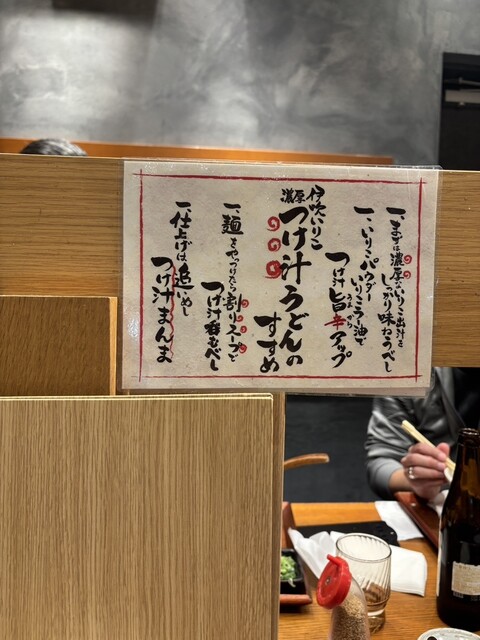 一、まずは濃厚ないりこ出汁を
しっかり味わうべし
一、いりこパウダー
いりこラー油で
つけ汁旨辛アップ
伊吹いりこ
濃厚
つけ汁うどんの
すすめ
一、麺をやっつけたら割りスープで
つけ汁呑むべし
一、仕上げは追いめし
つけ汁まんま